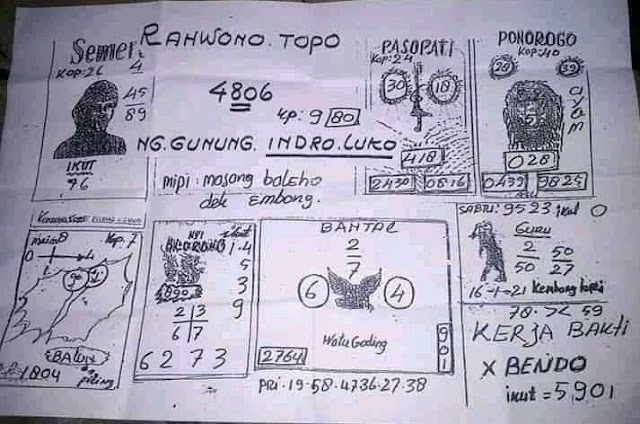 Semer
Kop:26 4
45
89
IKUT
76
RAHWONO.TOPO
4806
kp: 9 80
NG.GUNUNG. INDRO.LUKO
mipi: masang baleho
dek Embong.
PASOPATI
Kop:24
30 18
418
2430 0816
PONOROGO
KOP:40
39
ayam
028
0439 9825
Kop.7
0 4
BALUN
1804
1-4
5
3
9
2 3
6 7
6 2 7 3
BANTAL
2
7
6 4
Watu Goding
2764
901
PRI.19.58.4736.27.38
SABTU: 9523 ikut 0
GURU
2 50
50 27
16-1=21 Kembang
78.52 59
KERJA BAKTI
X BENDO
ikut = 5901